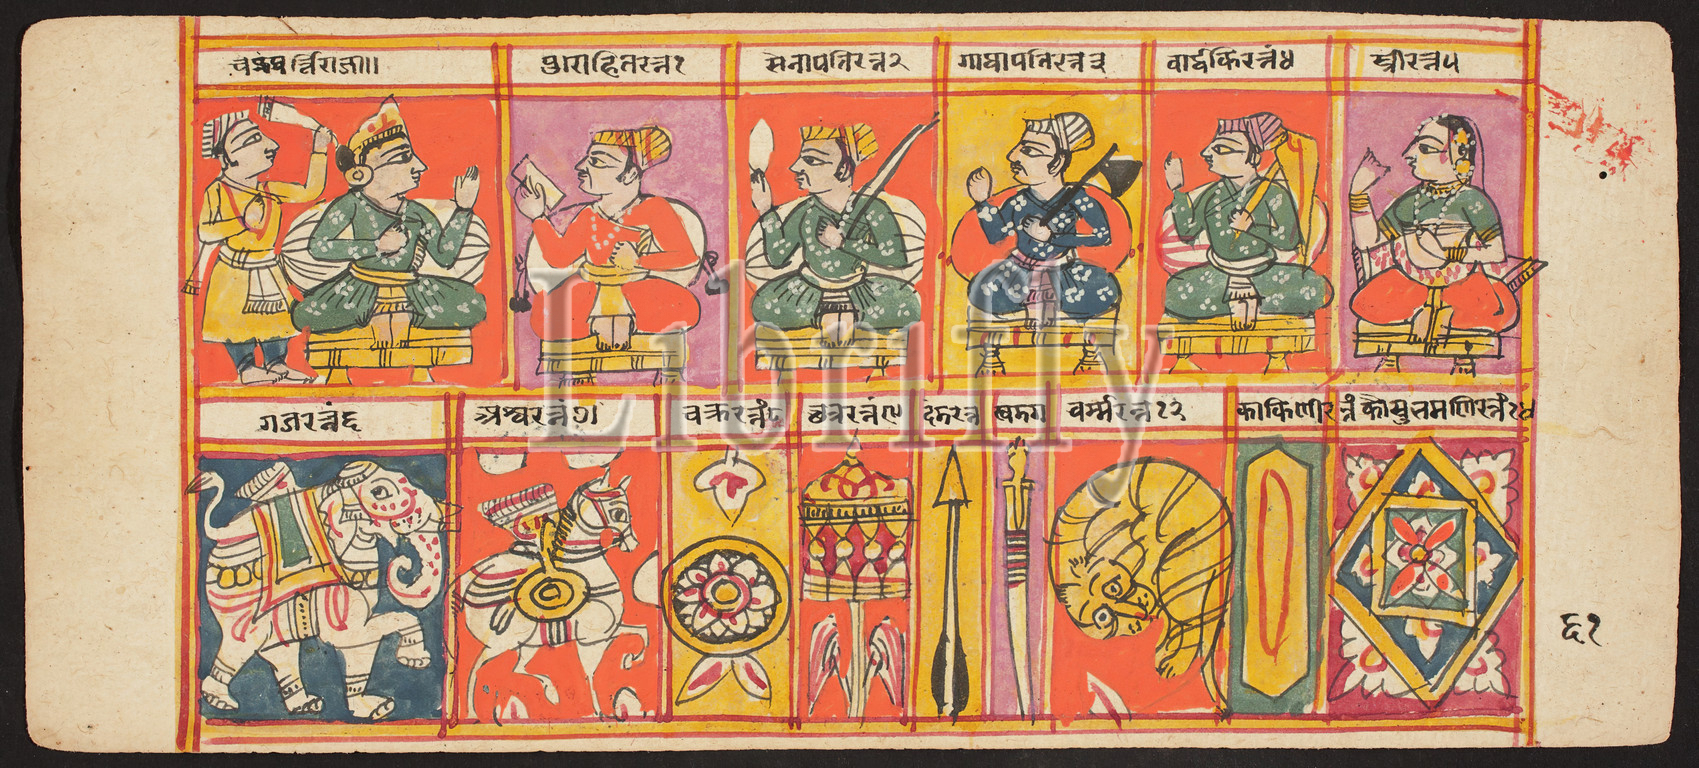 पुराहितरत्न१
सेनापतिरत्न२
गाथापतिरत्न३
वार्द्धकिरत्नं४
स्त्रीरत्न५
गजरत्नं६
अश्वरत्नं७
चक्ररत्नं८
छत्ररत्नं९
दंडरत्न
खडग
चर्म्मरत्न१२
काकिणीरत्नं
कौसुतमणिरत्नं१४
६१
Librifly